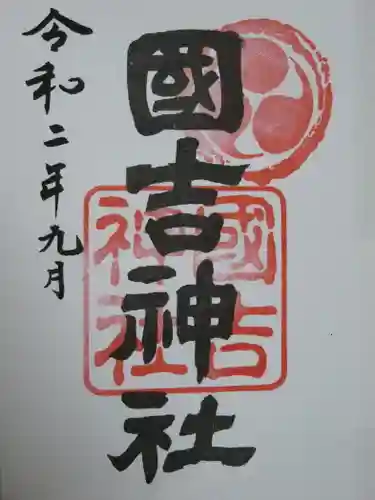 國吉神社
令和二年九月
國吉
神社